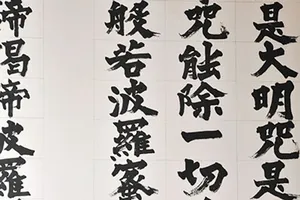 是大明咒是
咒能除一切
般若波羅蜜
諦曷帝波羅